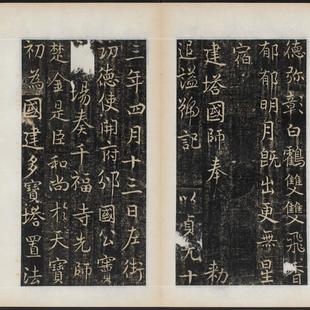 德弥彰白鶴雙雙飛香
郁郁明月既出更無星
宿
建塔國師奉 勑
追謚號記 以貞元十
三年四月十三日左街
功德使開府邠國公竇
塲奏千福寺先師
楚金是臣和尚於天寶
初為國建多寶塔置法